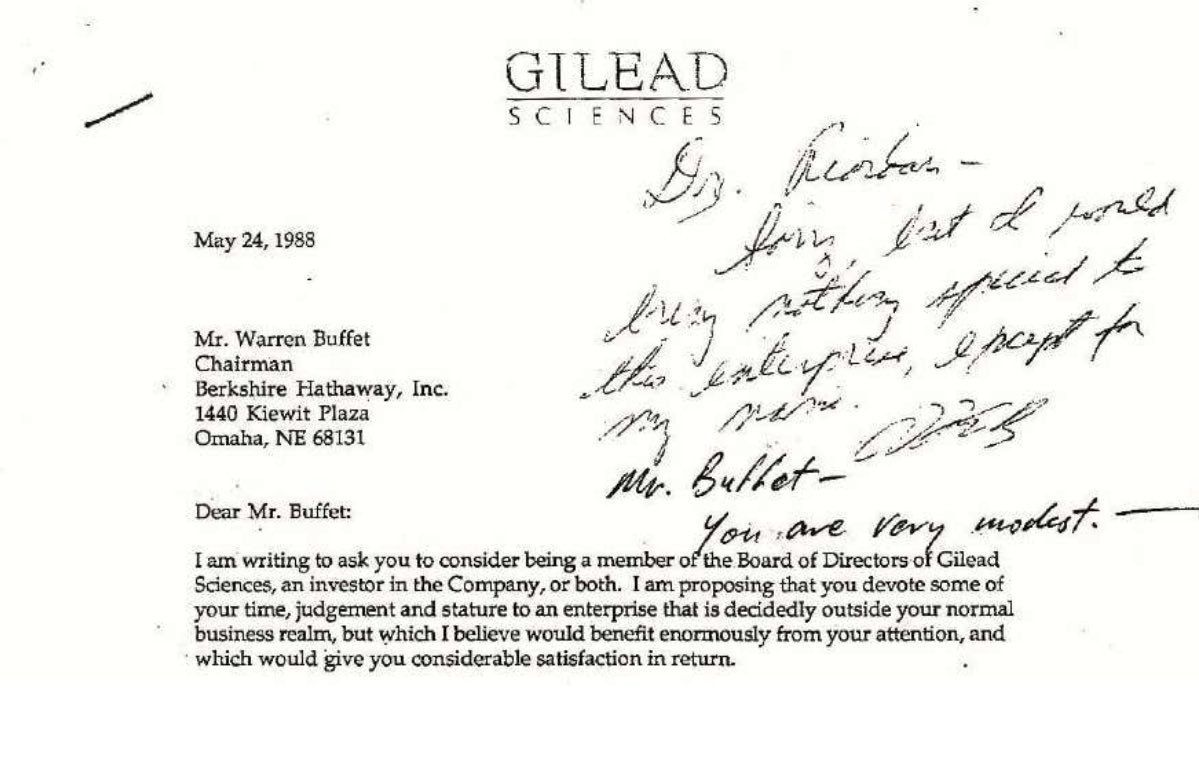 GILEAD
SCIENCES
Dr. Riordan –
Sorry, but I would
bring nothing special to
this enterprise, except for
my name.
WEB
May 24, 1988
Mr. Warren Buffet
Chairman
Berkshire Hathaway, Inc.
1440 Kiewit Plaza
Omaha, NE 68131
Mr. Buffet –
You are very modest. —
Dear Mr. Buffet:
I am writing to ask you to consider being a member of the Board of Directors of Gilead
Sciences, an investor in the Company, or both. I am proposing that you devote some of
your time, judgement and stature to an enterprise that is decidedly outside your normal
business realm, but which I believe would benefit enormously from your attention, and
which would give you considerable satisfaction in return.